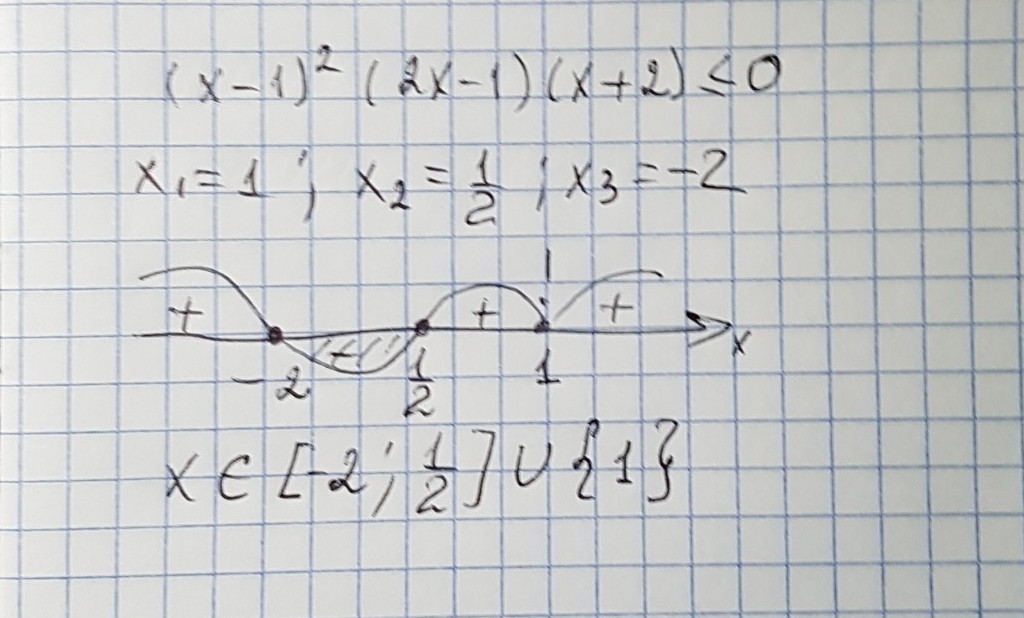 (x-1)² (2x-1)(x+2) ≤ 0
x₁ = 1 ; x₂ = 1/2 ; x₃ = -2
+ - + +
-2 1/2 1 x
x ∈ [-2; 1/2] ∪ {1}